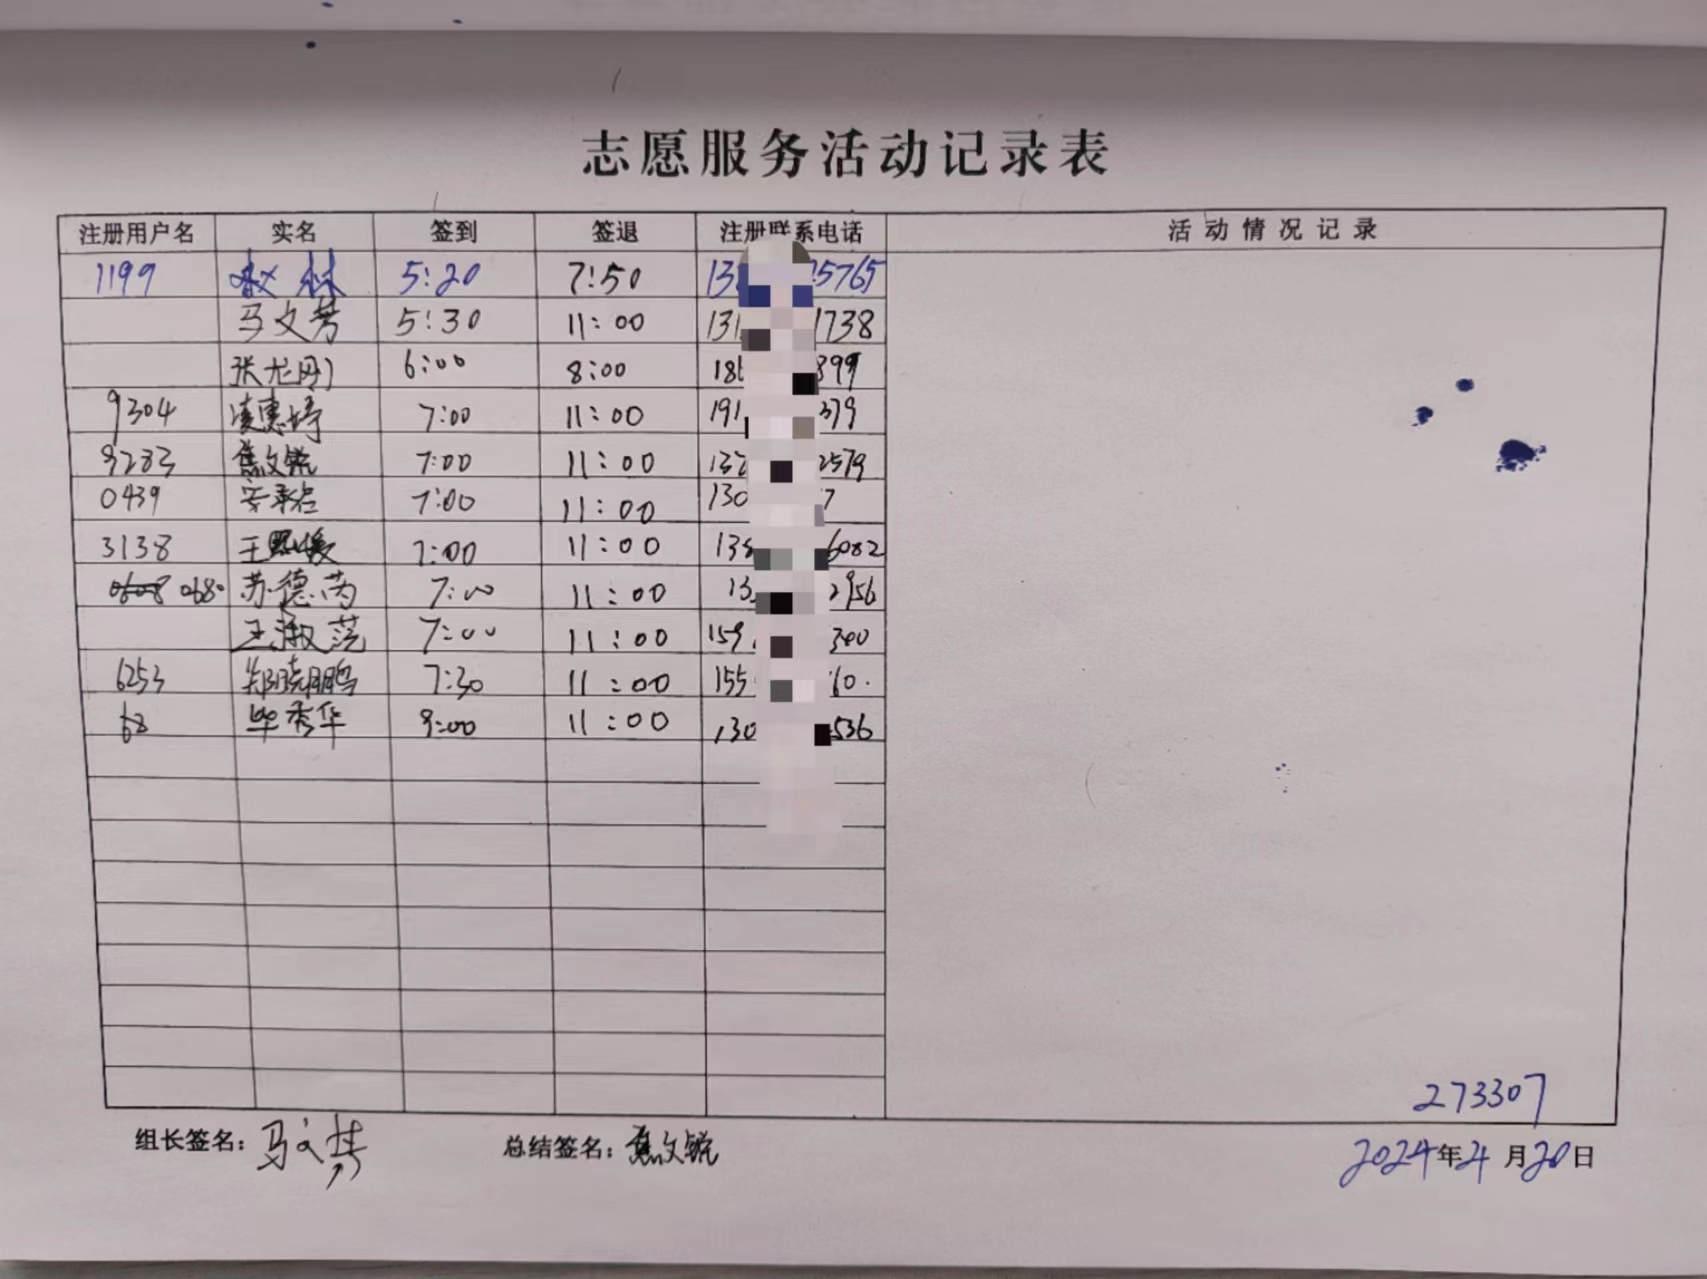 志愿服务活动记录表
注册用户名 实名 签到 签退 注册联系电话 活动情况记录
1199 赵林 5:20 7:50 13 5765
马文芳 5:30 11:00 131 1738
张龙刚 6:00 8:00 18 899
9304 凌惠婷 7:00 11:00 191 379
9283 焦文锐 7:00 11:00 132 2579
0439 安承启 7:00 11:00 130 7
3138 王 7:00 11:00 138 6082
0680 苏德芮 7:00 11:00 13 2956
王淑范 7:00 11:00 159 300
6253 郑晓鹏 7:30 11:00 155 60.
68 毕秀华 9:00 11:00 130 536
273307
组长签名: 马文芳 总结签名: 焦文锐 2024年4月20日